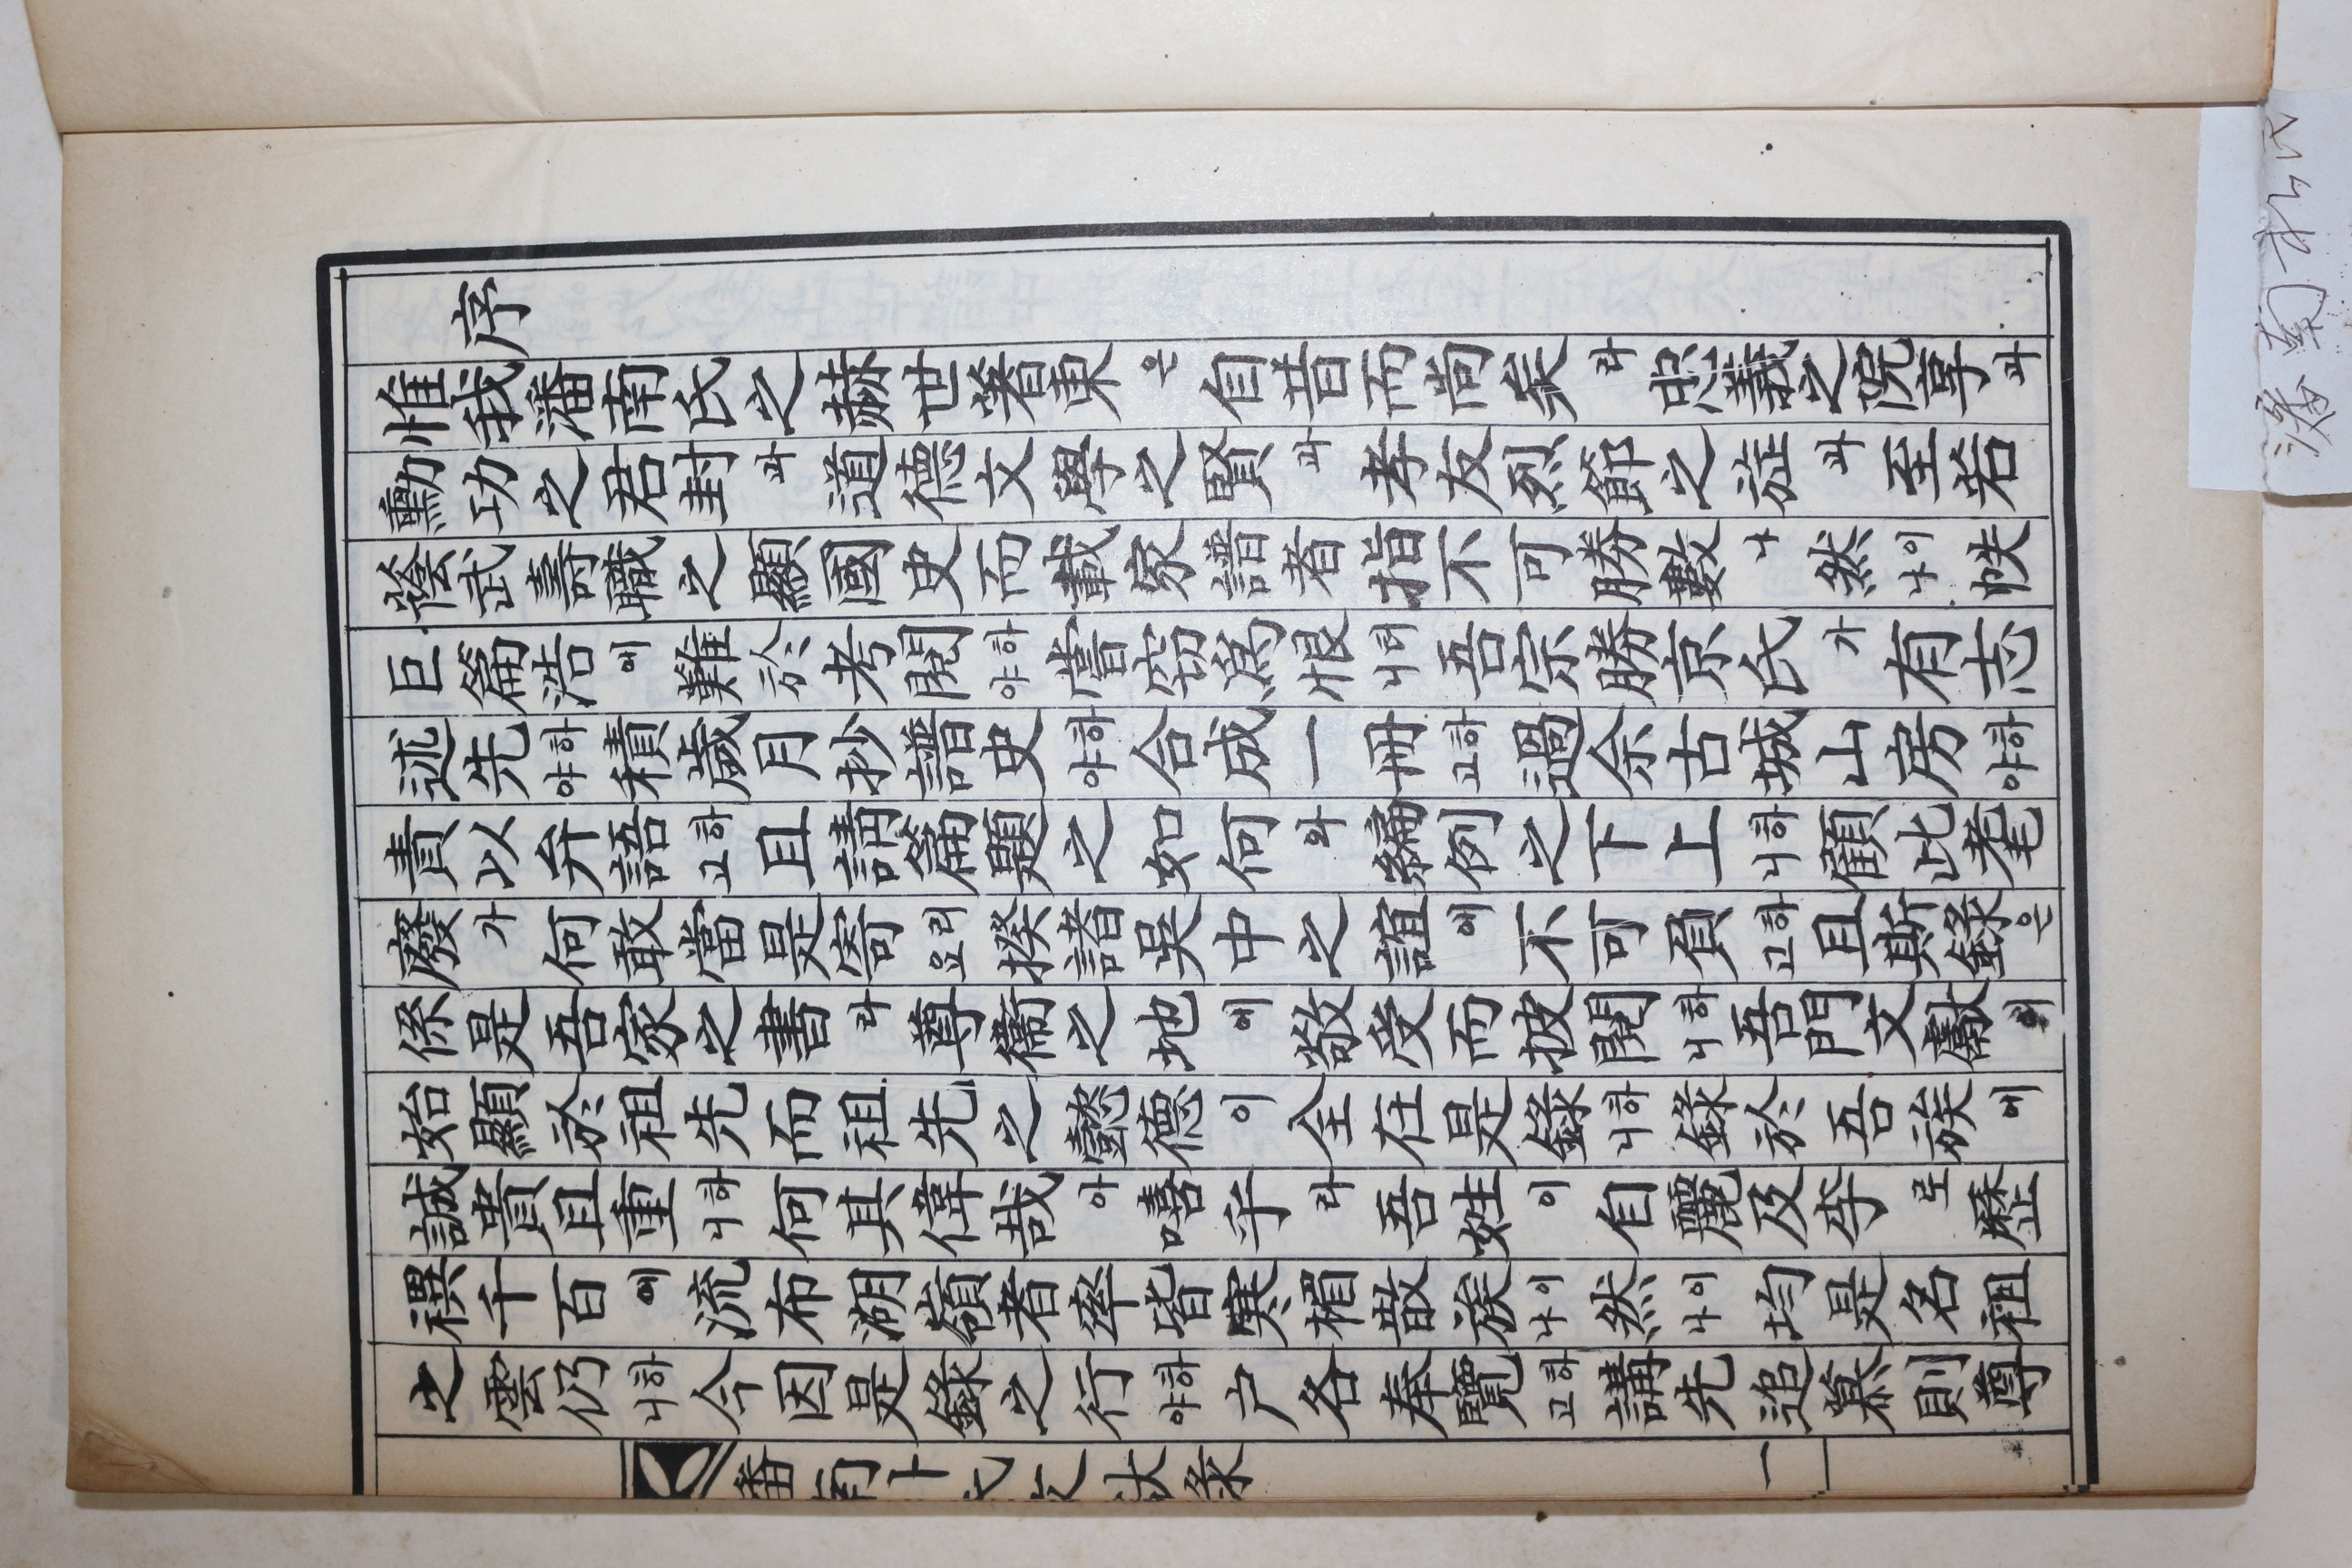 序
惟我潘南氏之赫世著東은自昔而尚矣라忠義之院享과
勳功之君封과道德文學之賢과孝友烈節之旌과至若
蔭武壽職之顯國史而載家譜者指不可勝數나然이나帙
巨篇浩에難於考閱하야嘗窃爲恨터니吾宗勝京氏가有志
述先하야積歲月抄譜史하야合成一冊하고過余古城山房하야
責以弁語하고且請篇題之如何와編例之下上하니顧此耄
廢가何敢當是寄리요揆諸吳中之誼에不可負하고且斯錄은
係是吾家之書라尊衞之地에敬受而披閱하니吾門文獻이
始顯於祖先而祖先之懿德이全在是錄하니錄於吾族에
誠貴且重하니何其偉哉아嘻乎라吾姓이自麗及李로歷
禩千百에流布湖嶺者率皆寒楣散族이나然이나均是名祖
之雲仍하니今因是錄之行하야户各奉覽하고講先追慕則尊
潘南朴氏文獻錄
一
潘南朴氏